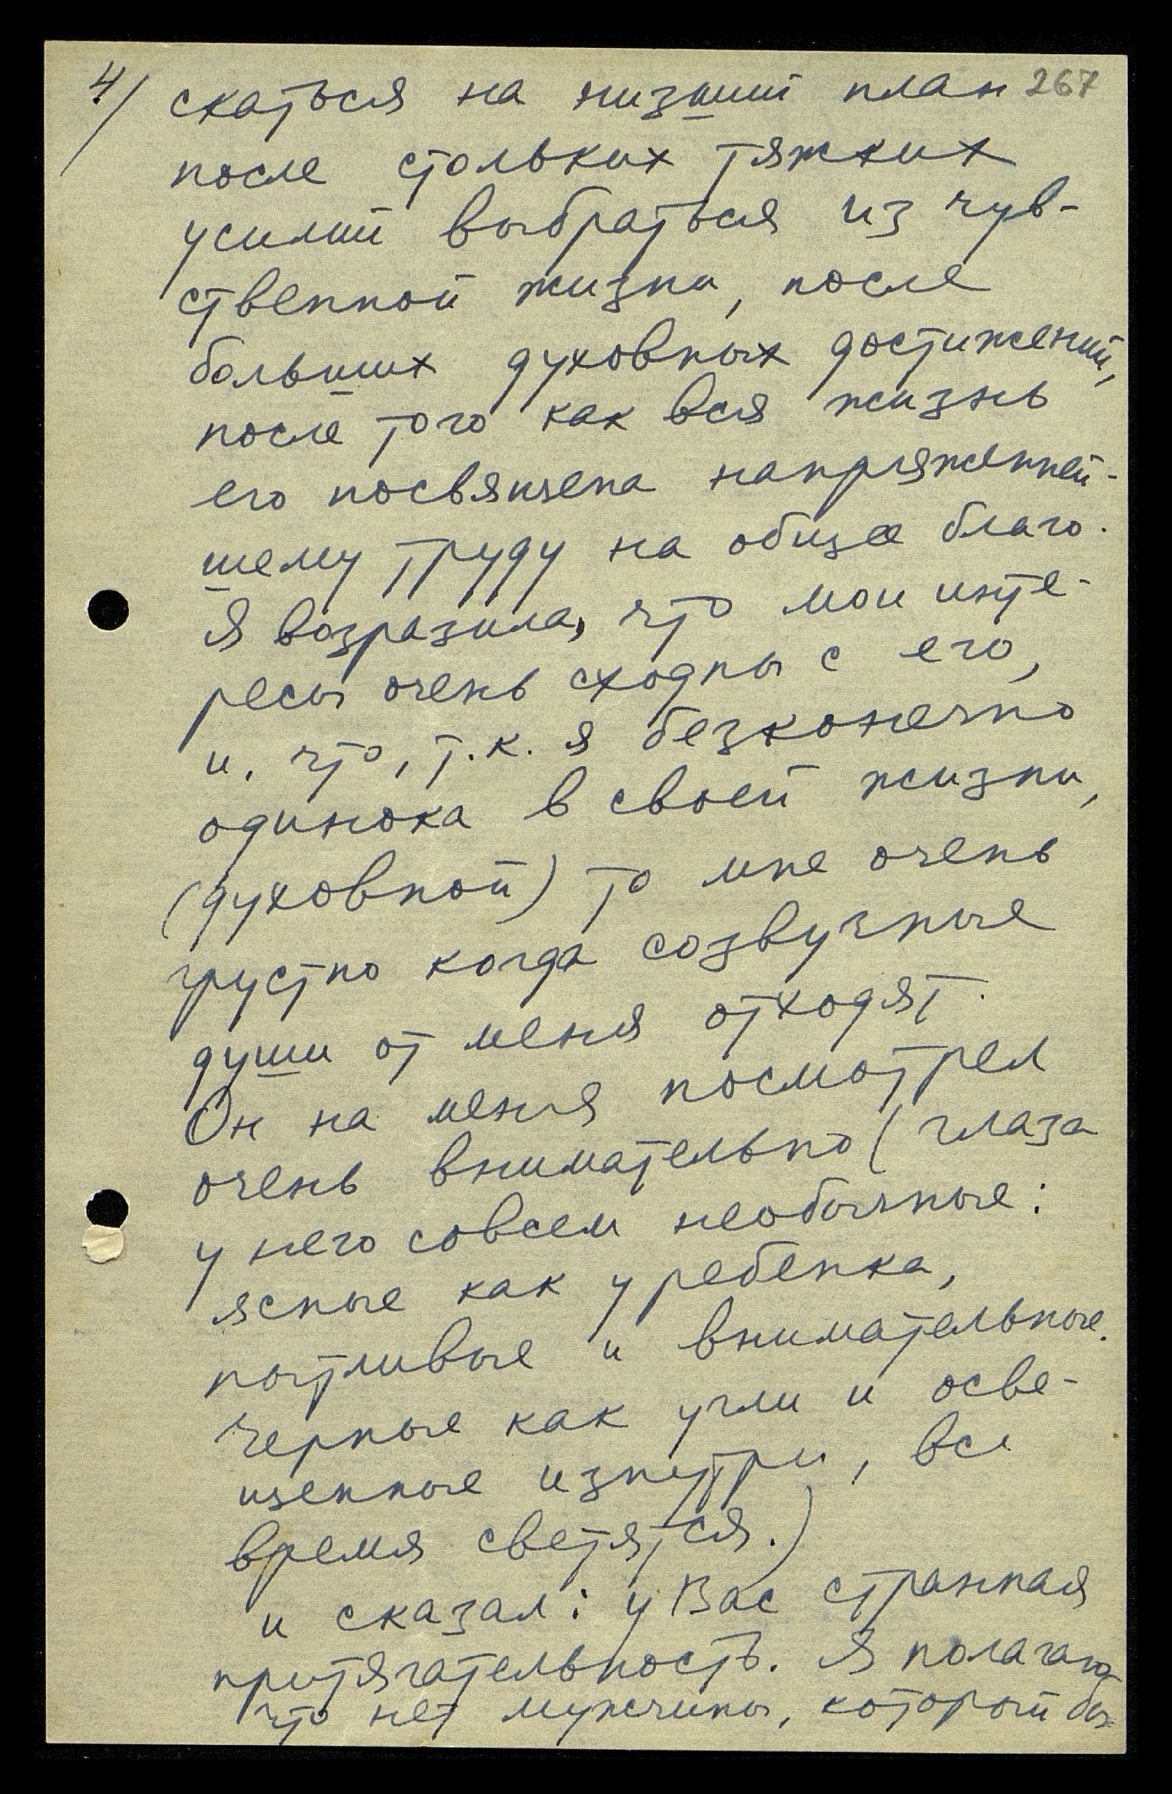 4/ скаться на низший план 267
после стольких тяжких
усилий выбраться из чув-
ственной жизни, после
больших духовных достижений,
после того как вся жизнь
его посвящена напряженней-
шему труду на общее благо.
Я возразила, что мои инте-
ресы очень сходны с его,
и, что, т.к. я безконечно
одинока в своей жизни,
(духовной) то мне очень
грустно когда созвучные
души от меня отходят.
Он на меня посмотрел
очень внимательно (глаза
у него совсем необычные:
ясные как у ребенка,
пытливые и внимательные.
Черные как угли и осве-
щенные изнутри, все
время светятся.)
и сказал: у Вас странная
притягательность. Я полагаю
что нет мужчины, который бы